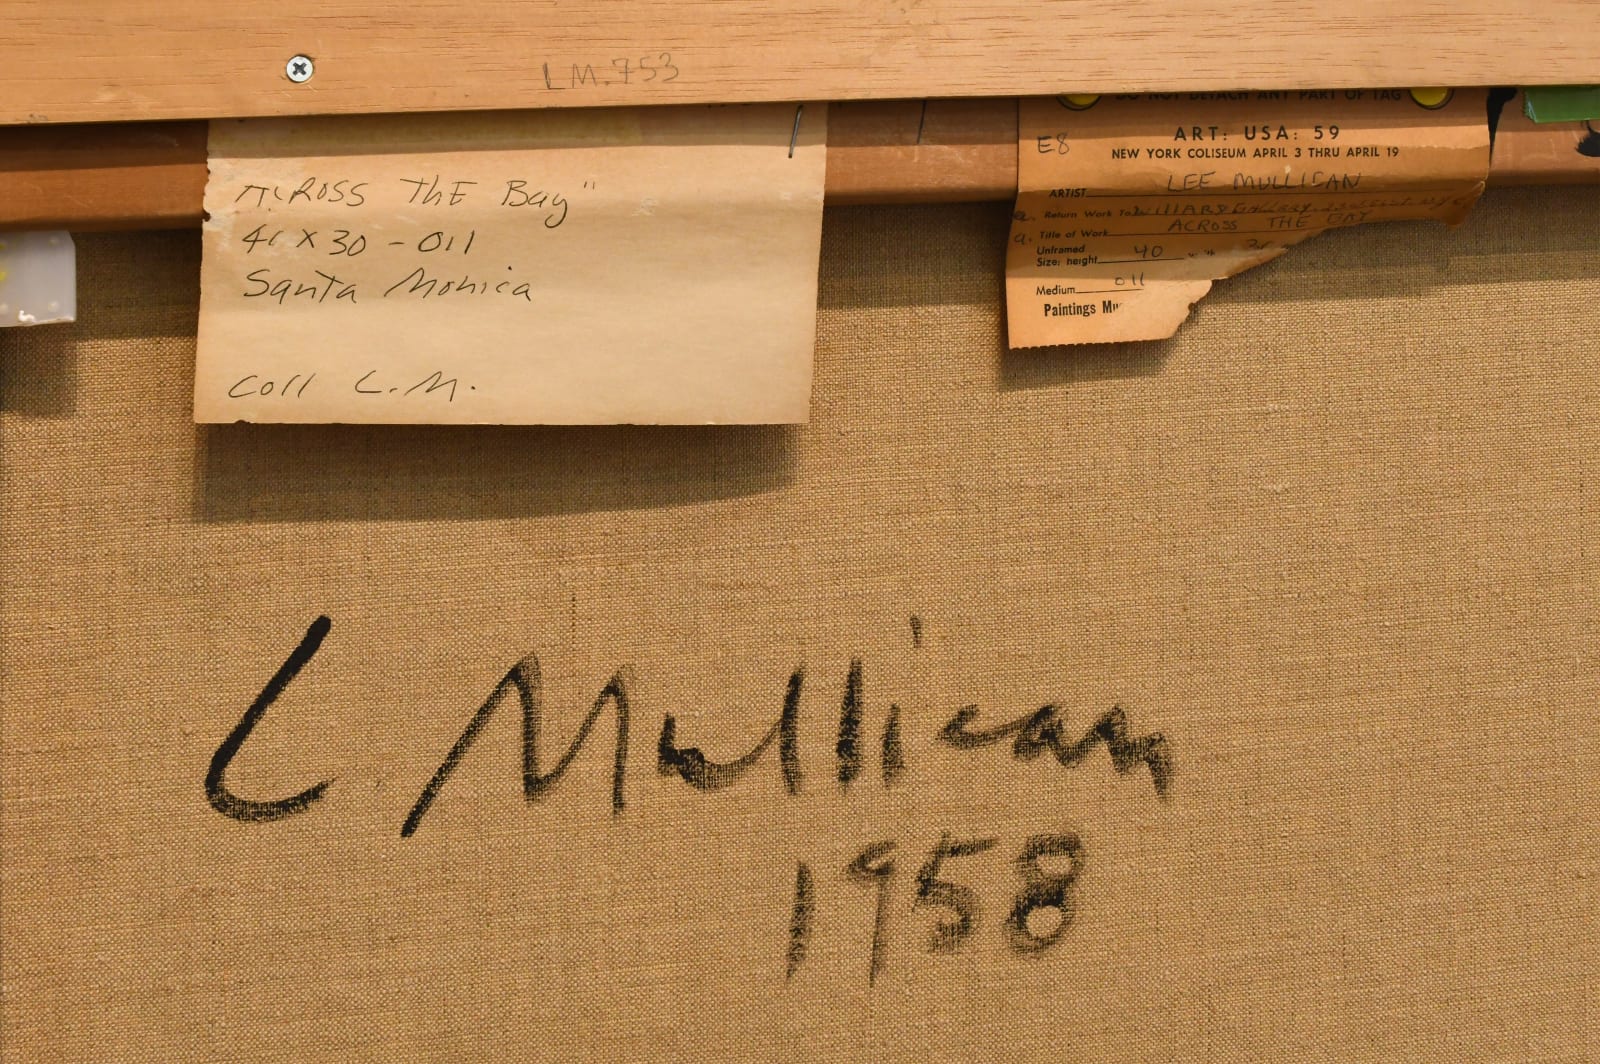 LM.753
ACROSS ThE Bay"
40 x 30 - OIl
Santa Monica
Coll L.M.
DO NOT DETACH ANY PART OF TAG
E8
ART: USA: 59
NEW YORK COLISEUM APRIL 3 THRU APRIL 19
ARTIST LEE MULLICAN
a. Return Work To WILLARD GALLERY
a. Title of Work ACROSS THE BAY
Unframed
Size: height 40
Medium OIl
Paintings
L Mullican
1958